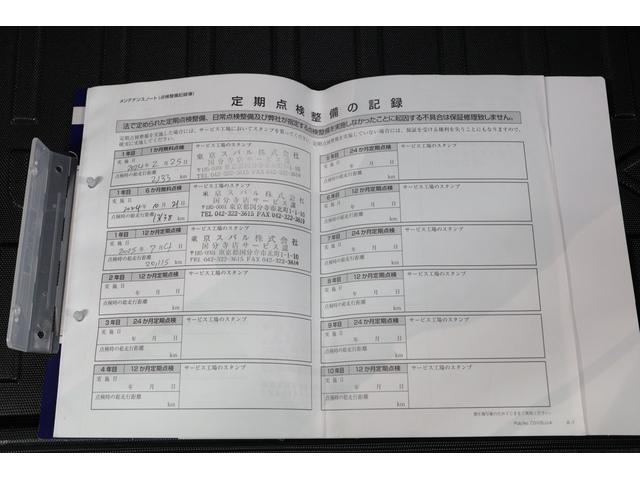 メンテナンスノート（点検整備記録簿）
定期点検整備の記録
法で定められた定期点検整備、日常点検整備及び弊社が指定する点検整備を実施しなかったことに起因する不具合は保証修理致しません。
定期点検整備を実施した場合には、サービス工場においてスタンプを捺してください。
1年目 1か月無料点検 サービス工場のスタンプ
実施日 2024年2月25日
点検時の総走行距離 2133 km
東京スバル株式会社
国分寺店サービス課
〒185-0001 東京都国分寺市北町1-1-10
TEL 042-322-3615 FAX 042-322-3619
1年目 6か月無料点検 サービス工場のスタンプ
実施日 2024年10月21日
点検時の総走行距離 km
東京スバル株式会社
国分寺店サービス課
〒185-0001 東京都国分寺市北町1-1-10
TEL 042-322-3615 FAX 042-322-3619
1年目 12か月定期点検 サービス工場のスタンプ
実施日 2025年7月4日
点検時の総走行距離 20115 km
東京スバル株式会社
国分寺店サービス課
〒185-0001 東京都国分寺市北町1-1-10
TEL 042-322-3615 FAX 042-322-3619
2年目 12か月定期点検 サービス工場のスタンプ
実施日 年 月 日
点検時の総走行距離 km
3年目 24か月定期点検 サービス工場のスタンプ
実施日 年 月 日
点検時の総走行距離 km
4年目 12か月定期点検 サービス工場のスタンプ
実施日 年 月 日
点検時の総走行距離 km
5年目 24か月定期点検 サービス工場のスタンプ
実施日 年 月 日
点検時の総走行距離 km
6年目 12か月定期点検 サービス工場のスタンプ
実施日 年 月 日
点検時の総走行距離 km
7年目 24か月定期点検 サービス工場のスタンプ
実施日 年 月 日
点検時の総走行距離 km
8年目 12か月定期点検 サービス工場のスタンプ
実施日 年 月 日
点検時の総走行距離 km
9年目 24か月定期点検 サービス工場のスタンプ
実施日 年 月 日
点検時の総走行距離 km
10年目 12か月定期点検 サービス工場のスタンプ
実施日 年 月 日
点検時の総走行距離 km